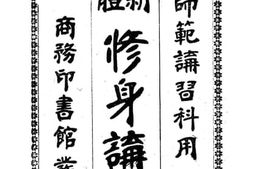 師範講習科用
新體
修身講
商務印書館